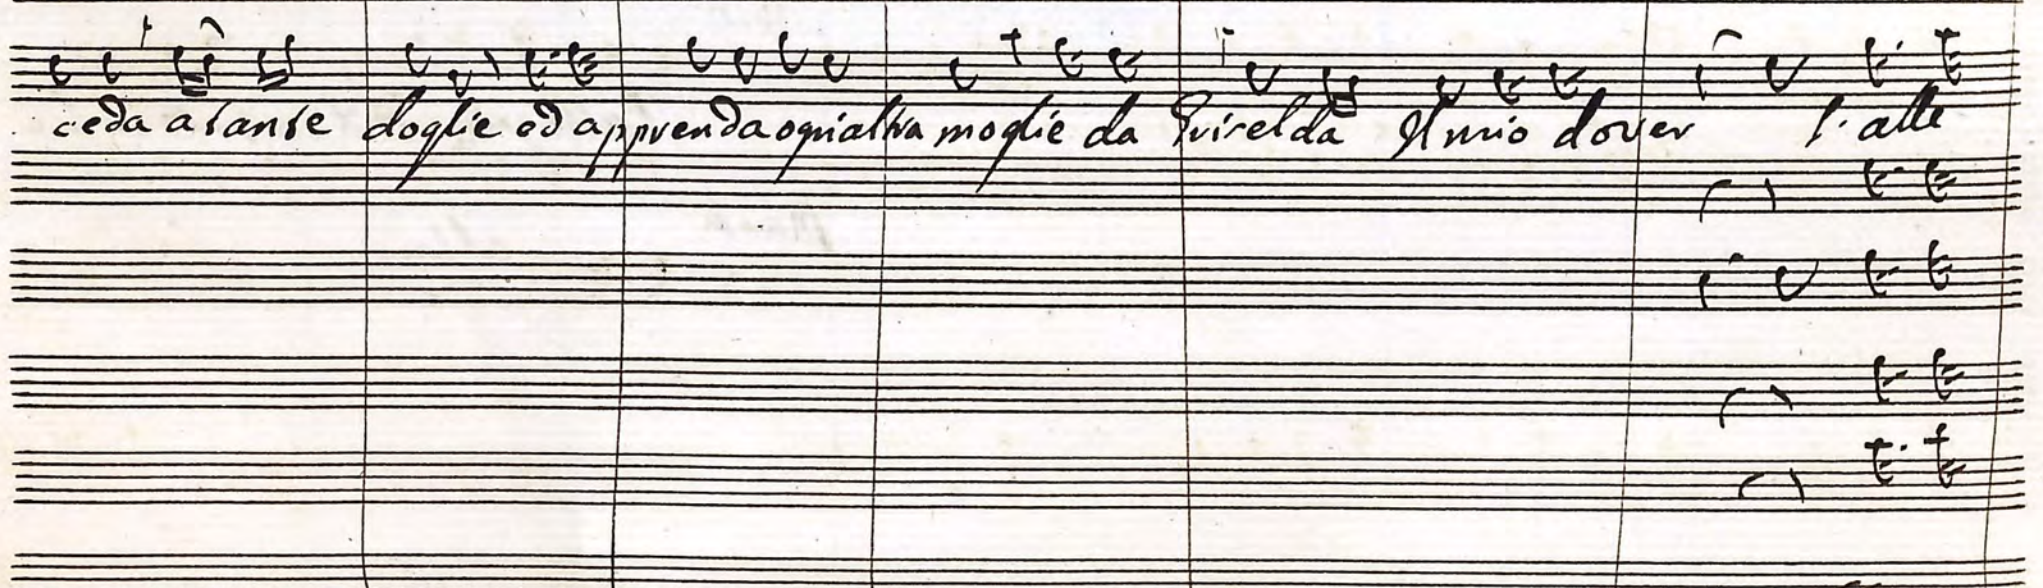 ceda a tante doglie ed apprenda ogni altra moglie da Griselda Il mio dover l'alte